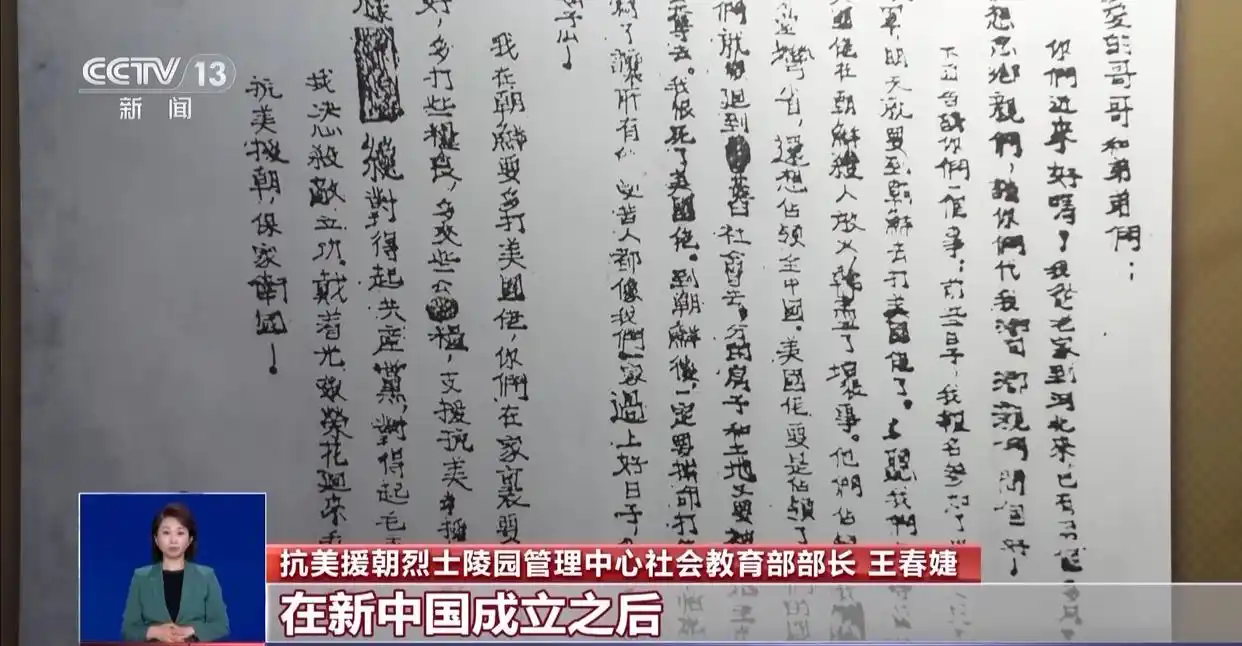 CCTV 13
新闻
爱的哥哥和弟弟們：
你們近來好嗎？我從老家到河北來已有
想念鄉親們，請你們代我向鄉親們問個好！
下面告訴你們一個事：前些日子，我報名參加了
軍，明天就要到朝鮮去打美國佬了。我們
美國佬在朝鮮殺人放火幹盡了壞事。他們佔
台灣省，還想佔領全中國。美國佬要是佔領了
們就要迴到舊社會去。分的房子和土地又要被
奪去。我恨死了美國佬。到朝鮮後，一定要拼命打
為了讓所有的受苦人都像我們家過上好日子
我在朝鮮要多打美國佬，你們在家裏要
好，多打些糧食，多交些公糧，支援抗美援
樣纔對得起共産黨，對得起毛
我决心殺敵立功。戴着光榮花迴來
抗美援朝，保家衛國！
抗美援朝烈士陵园管理中心社会教育部部长 王春婕
在新中国成立之后